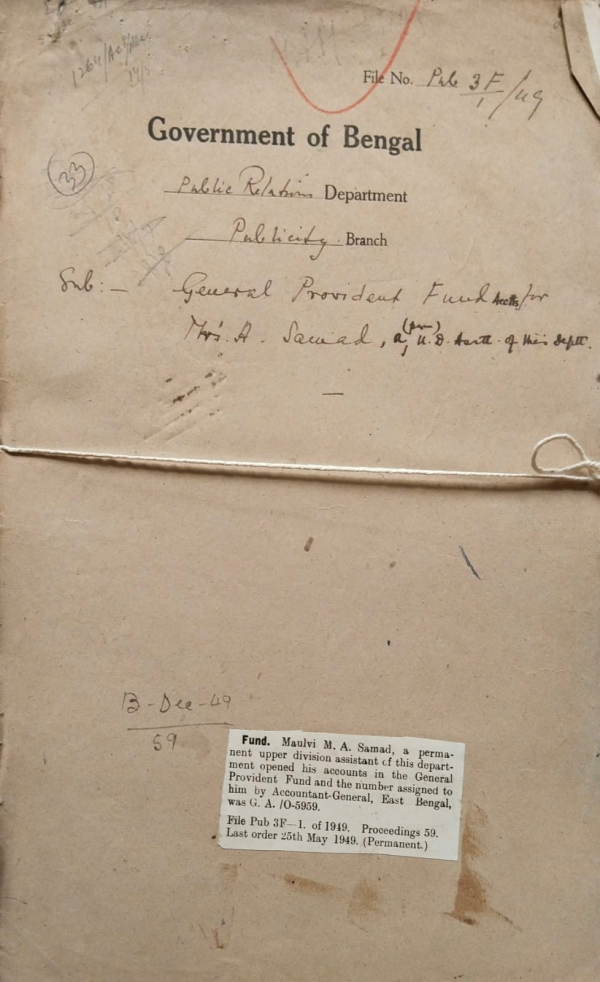 File No. Pub 3F/1/49
Government of Bengal
33
Public Relations Department
Publicity Branch
Sub:— General Provident Fund Acctts for
A. Samad, a (per) U.D. Asstt. of this Deptt.
B-Dec-49
59
Fund. Maulvi M. A. Samad, a perma-
nent upper division assistant of this depart-
ment opened his accounts in the General
Provident Fund and the number assigned to
him by Accountant-General, East Bengal,
was G. A. /O-5959.
File Pub 3F—1. of 1949. Proceedings 59.
Last order 25th May 1949. (Permanent.)